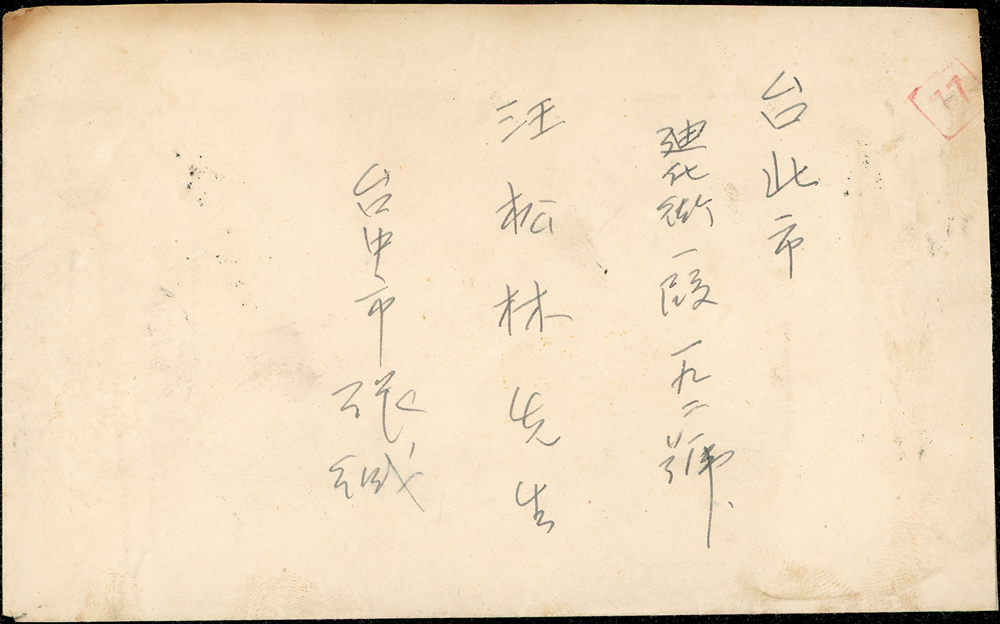 台北市
廸化街一段一九二號
汪松林先生
台中市張緘
17